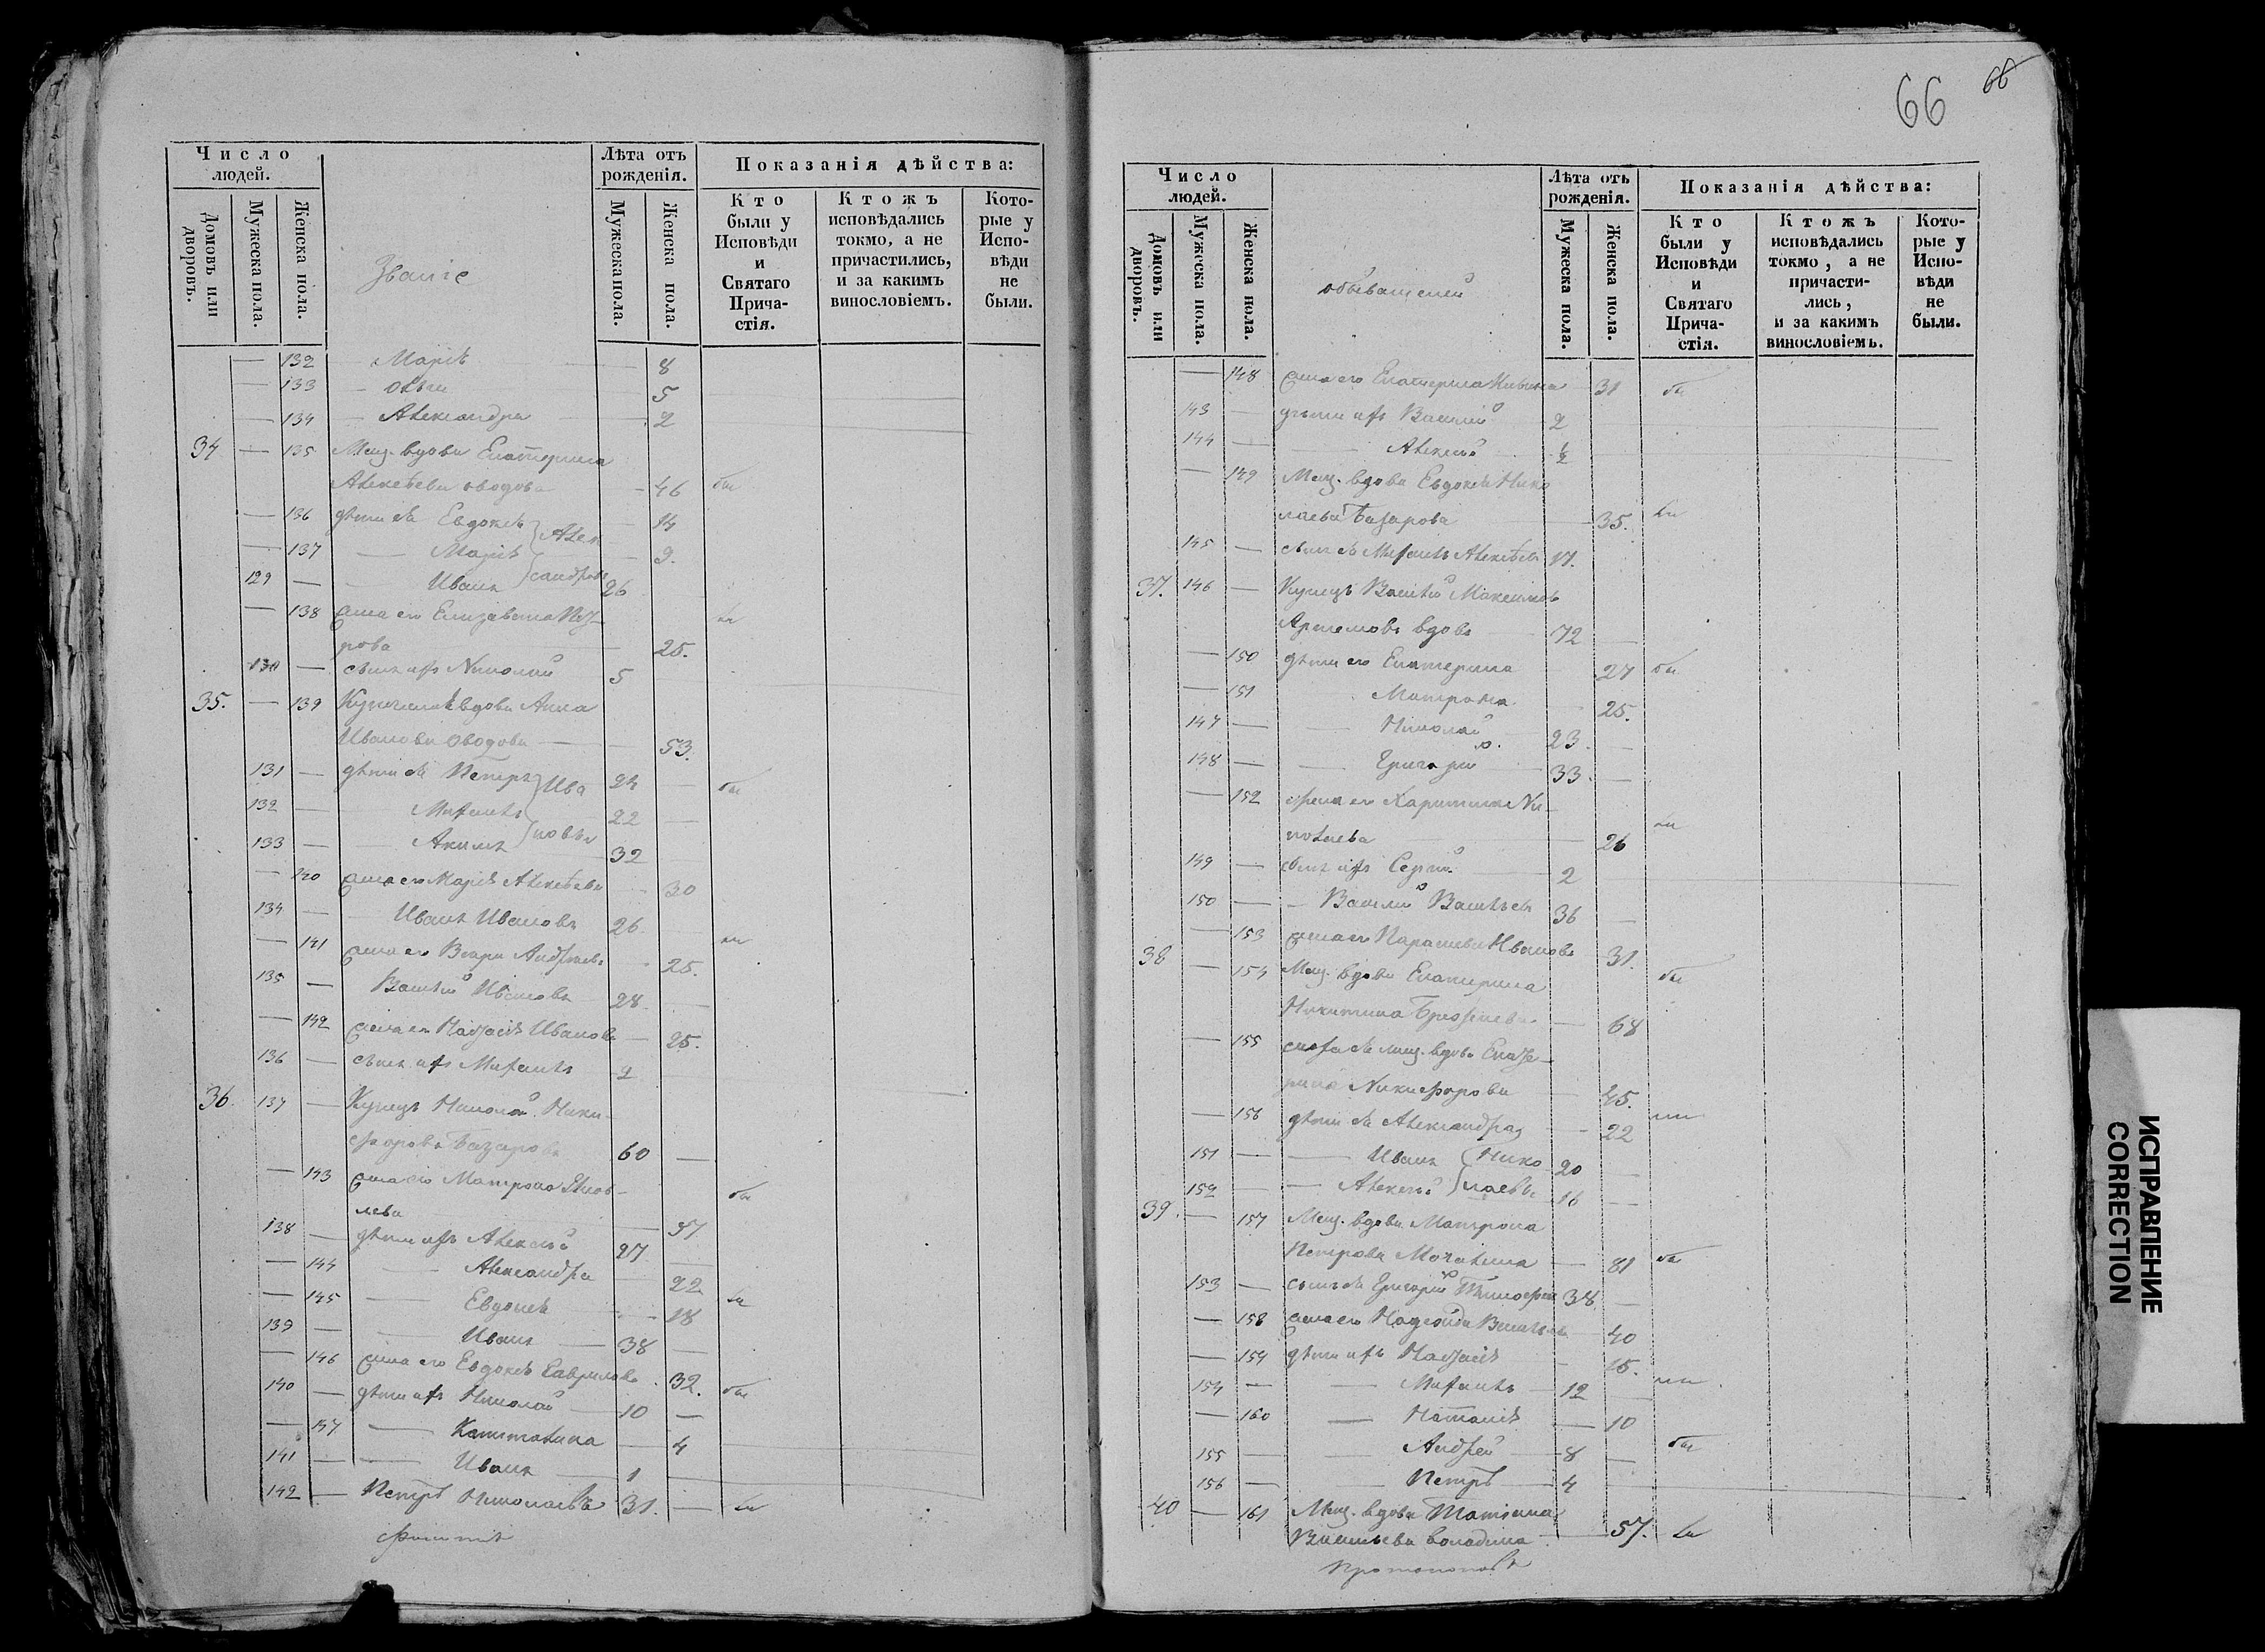 66 66
Число людей.
Лѣта отъ рожденія.
Показанія дѣйства:
Домовъ или дворовъ.
Мужеска пола.
Женска пола.
Званіе
Мужеска пола.
Женска пола.
Кто были у Исповѣди и Святаго Причастія.
Ктожъ исповѣдались токмо, а не причастились, и за какимъ винословіемъ.
Которые у Исповѣди не были.
— 132 Марія — 8
— 133 Ольга 5
— 134 Александра 2
34 — 135 Мещ. вдова Екатерина
Алексѣева — 46 бы
— 136 дѣти ея Евдокія — 14
— 137 — Марія Алек — 9.
129 — — Иванъ сандровы 26
— 138 жена его Елизавета
рова 25.
130 — сынъ ихъ Николай 5
35. — 139 вдова Анна
Иванова — 53.
131 — дѣти ея Петръ Ива 24 —
132 — Михаилъ 22 —
133 — — Акимъ новы 32
— 140 жена его Марія Алексѣева — 30
134 — Иванъ Ивановъ 26
— 141 жена его Андреева — 25.
135 — Василій Ивановъ 28 —
— 142 жена его Наталія Иванова — 25.
136 — сынъ ихъ Михаилъ 2
36. 137 — Купецъ Николай Ники-
форовъ Базаровъ 60 —
— 143 жена его Матрона Яков-
лева — 57
138 — дѣти ихъ Алексѣй 27 —
— 144 — Александра — 22
— 145 — Евдокія — 18
139 — Иванъ 38 —
— 146 жена его Евдокія Гаврилова 32. бы
140 — дѣти ихъ Николай — 10 —
— 147 — Капитолина — 4
141 — — Иванъ 1
142 — Петръ Николаевъ 31. —
Число людей.
Лѣта отъ рожденія.
Показанія дѣйства:
Домовъ или дворовъ.
Мужеска пола.
Женска пола.
обывателей
Мужеска пола.
Женска пола.
Кто были у Исповѣди и Святаго Причастія.
Ктожъ исповѣдались токмо, а не причастились, и за какимъ винословіемъ.
Которые у Исповѣди не были.
— 148 жена его Екатерина 31 бы
143 — дѣти ихъ Василій 2
144 — — Алексѣй ½
— 149 Мещ. вдова Евдокія Нико
лаева Базарова 35.
145 — сынъ ея Михаилъ Алексѣевъ 17.
37. 146 — Купецъ Василій Максимовъ
Артемовъ вдовъ 72 —
— 150 дѣти его Екатерина 27 бы
— 151 Матрона 25.
147 — — Николай 23. —
148 — — Григорій 33 —
— 152 жена его Харитина Ни-
колаева 26
149 — сынъ ихъ Сергій 2
150 — — Василій Васильевъ 36 —
— 153 жена его Параскева Иванова 31.
38 — 154 Мещ. вдова Екатерина
Никитина — 68
— 155 сноха ея мещ. вдова
Никифорова 45.
— 156 дѣти ея Александра — 22
151 — — Иванъ Нико 20 —
152 — — Алексѣй лаевы 16 —
39. — 157 Мещ. вдова Матрона
Петрова — 81 бы
153 — сынъ ея Григорій Тимофеевъ 38. —
— 158 жена его Надежда Васильева 40
— 159 дѣти ихъ Наталія — 15.
154 — — Михаилъ — 12 —
— 160 — Наталія — 10
155 — Андрей — 8 — бы
156 — — Петръ 4
40 — 161 Мещ. вдова Татіана
Васильева — 57.
Протопоповъ
ИСПРАВЛЕНИЕ
CORRECTION